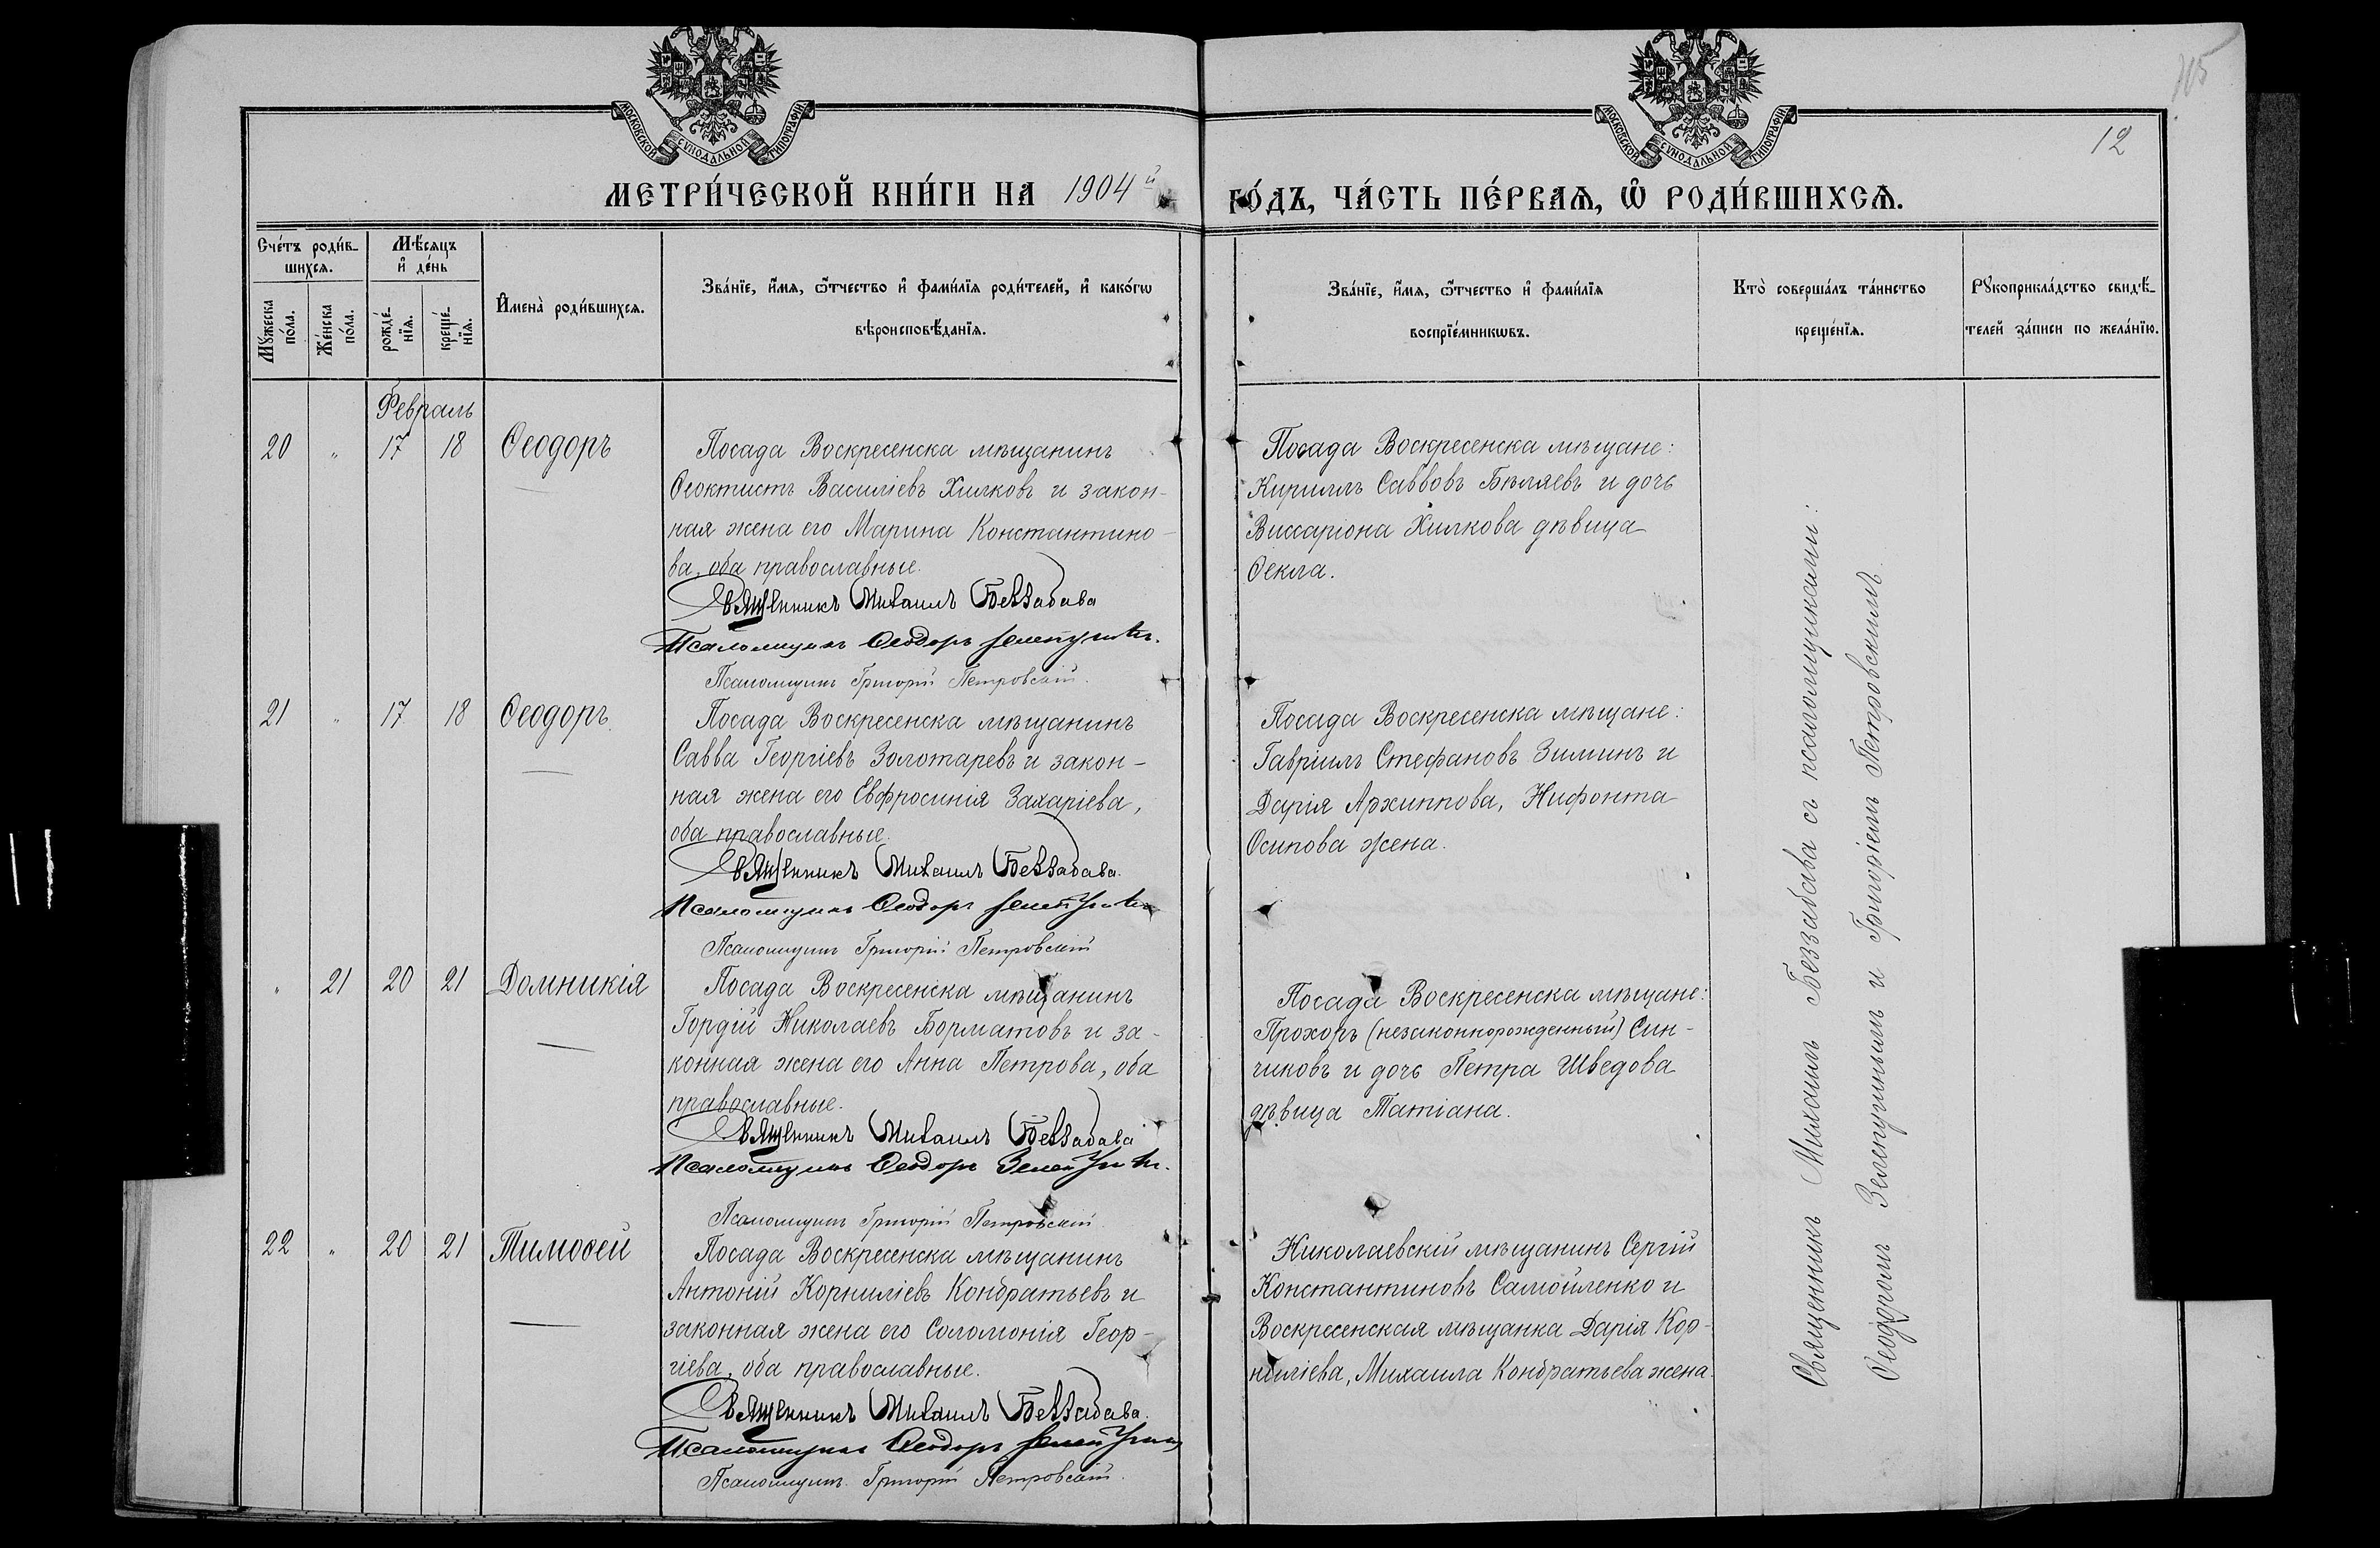 МОСКОВСКОЙ СУНОДАЛЬНОЙ ТИПОГРАФІИ.
МОСКОВСКОЙ СУНОДАЛЬНОЙ ТИПОГРАФІИ.
12
МЕТРИ́ЧЕСКОЙ КНИ́ГИ НА 1904й
ГО́ДЪ, ЧА́СТЬ ПЕ́РВАѦ, Ѡ҆ РОДИ́ВШИХСѦ.
Сче́тъ роди́в-
шихсѧ.
Мꙋ́жеска
по́ла.
Же́нска
по́ла.
Мѣ́сяцъ
и҆ де́нь
рожде́-
нїѧ.
креще́-
нїѧ.
И҆мена̀ роди́вшихсѧ.
Зва́нїе, и҆́мя, ѻ҆́тчество и҆ фами́лїя роди́телей, и҆ како́гѡ
вѣроисповѣ́данїя.
Зва́нїе, и҆́мя, ѻ҆́тчество и҆ фами́лїя
воспрїе́мникѡвъ.
Кто̀ соверша́лъ та́инство
креще́нїя.
Рꙋкоприкла́дство свидѣ́-
телей за́писи по жела́нїю.
Февраль
20 " 17 18 Ѳеодоръ
Посада Воскресенска мѣщанинъ
Ѳеоктистъ Василіевъ Хилковъ и закон-
ная жена его Марина Константино-
ва, оба православные.
Священникъ Михаилъ Беззабава
Псаломщикъ Ѳеодоръ Зелепугинъ.
Псаломщикъ Григорій Петровскій.
Посада Воскресенска мѣщане:
Кириллъ Саввовъ Бѣляевъ и дочь
Виссаріона Хилкова дѣвица
Ѳекла.
21 " 17 18 Ѳеодоръ
Посада Воскресенска мѣщанинъ
Савва Георгіевъ Золотаревъ и закон-
ная жена его Евфросинія Захаріева,
оба православные.
Священникъ Михаилъ Беззабава.
Псаломщикъ Ѳеодоръ Зелепугинъ
Псаломщикъ Григорій Петровскій
Посада Воскресенска мѣщане:
Гавріилъ Стефановъ Зиминъ и
Дарія Архиппова, Нифонта
Осипова жена.
" 21 20 21 Домникія
Посада Воскресенска мѣщанинъ
Гордій Николаевъ Борматовъ и за-
конная жена его Анна Петрова, оба
православные.
Священникъ Михаилъ Беззабава
Псаломщикъ Ѳеодоръ Зелепугинъ.
Псаломщикъ Григорій Петровскій.
Посада Воскресенска мѣщане:
Прохоръ (незаконнорожденный) Син-
чиковъ и дочь Петра Шведова
дѣвица Татіана.
22 " 20 21 Тимоѳей
Посада Воскресенска мѣщанинъ
Антоній Корниліевъ Кондратьевъ и
законная жена его Соломонія Геор-
гіева, оба православные.
Священникъ Михаилъ Беззабава.
Псаломщикъ Ѳеодоръ Зелепугинъ
Псаломщикъ Григорій Петровскій.
Николаевскій мѣщанинъ Сергій
Константиновъ Самойленко и
Воскресенская мѣщанка Дарія Кор-
ниліева, Михаила Кондратьева жена.
Священникъ Михаилъ Беззабава съ псаломщиками:
Ѳеодоромъ Зелепугинымъ и Григоріемъ Петровскимъ